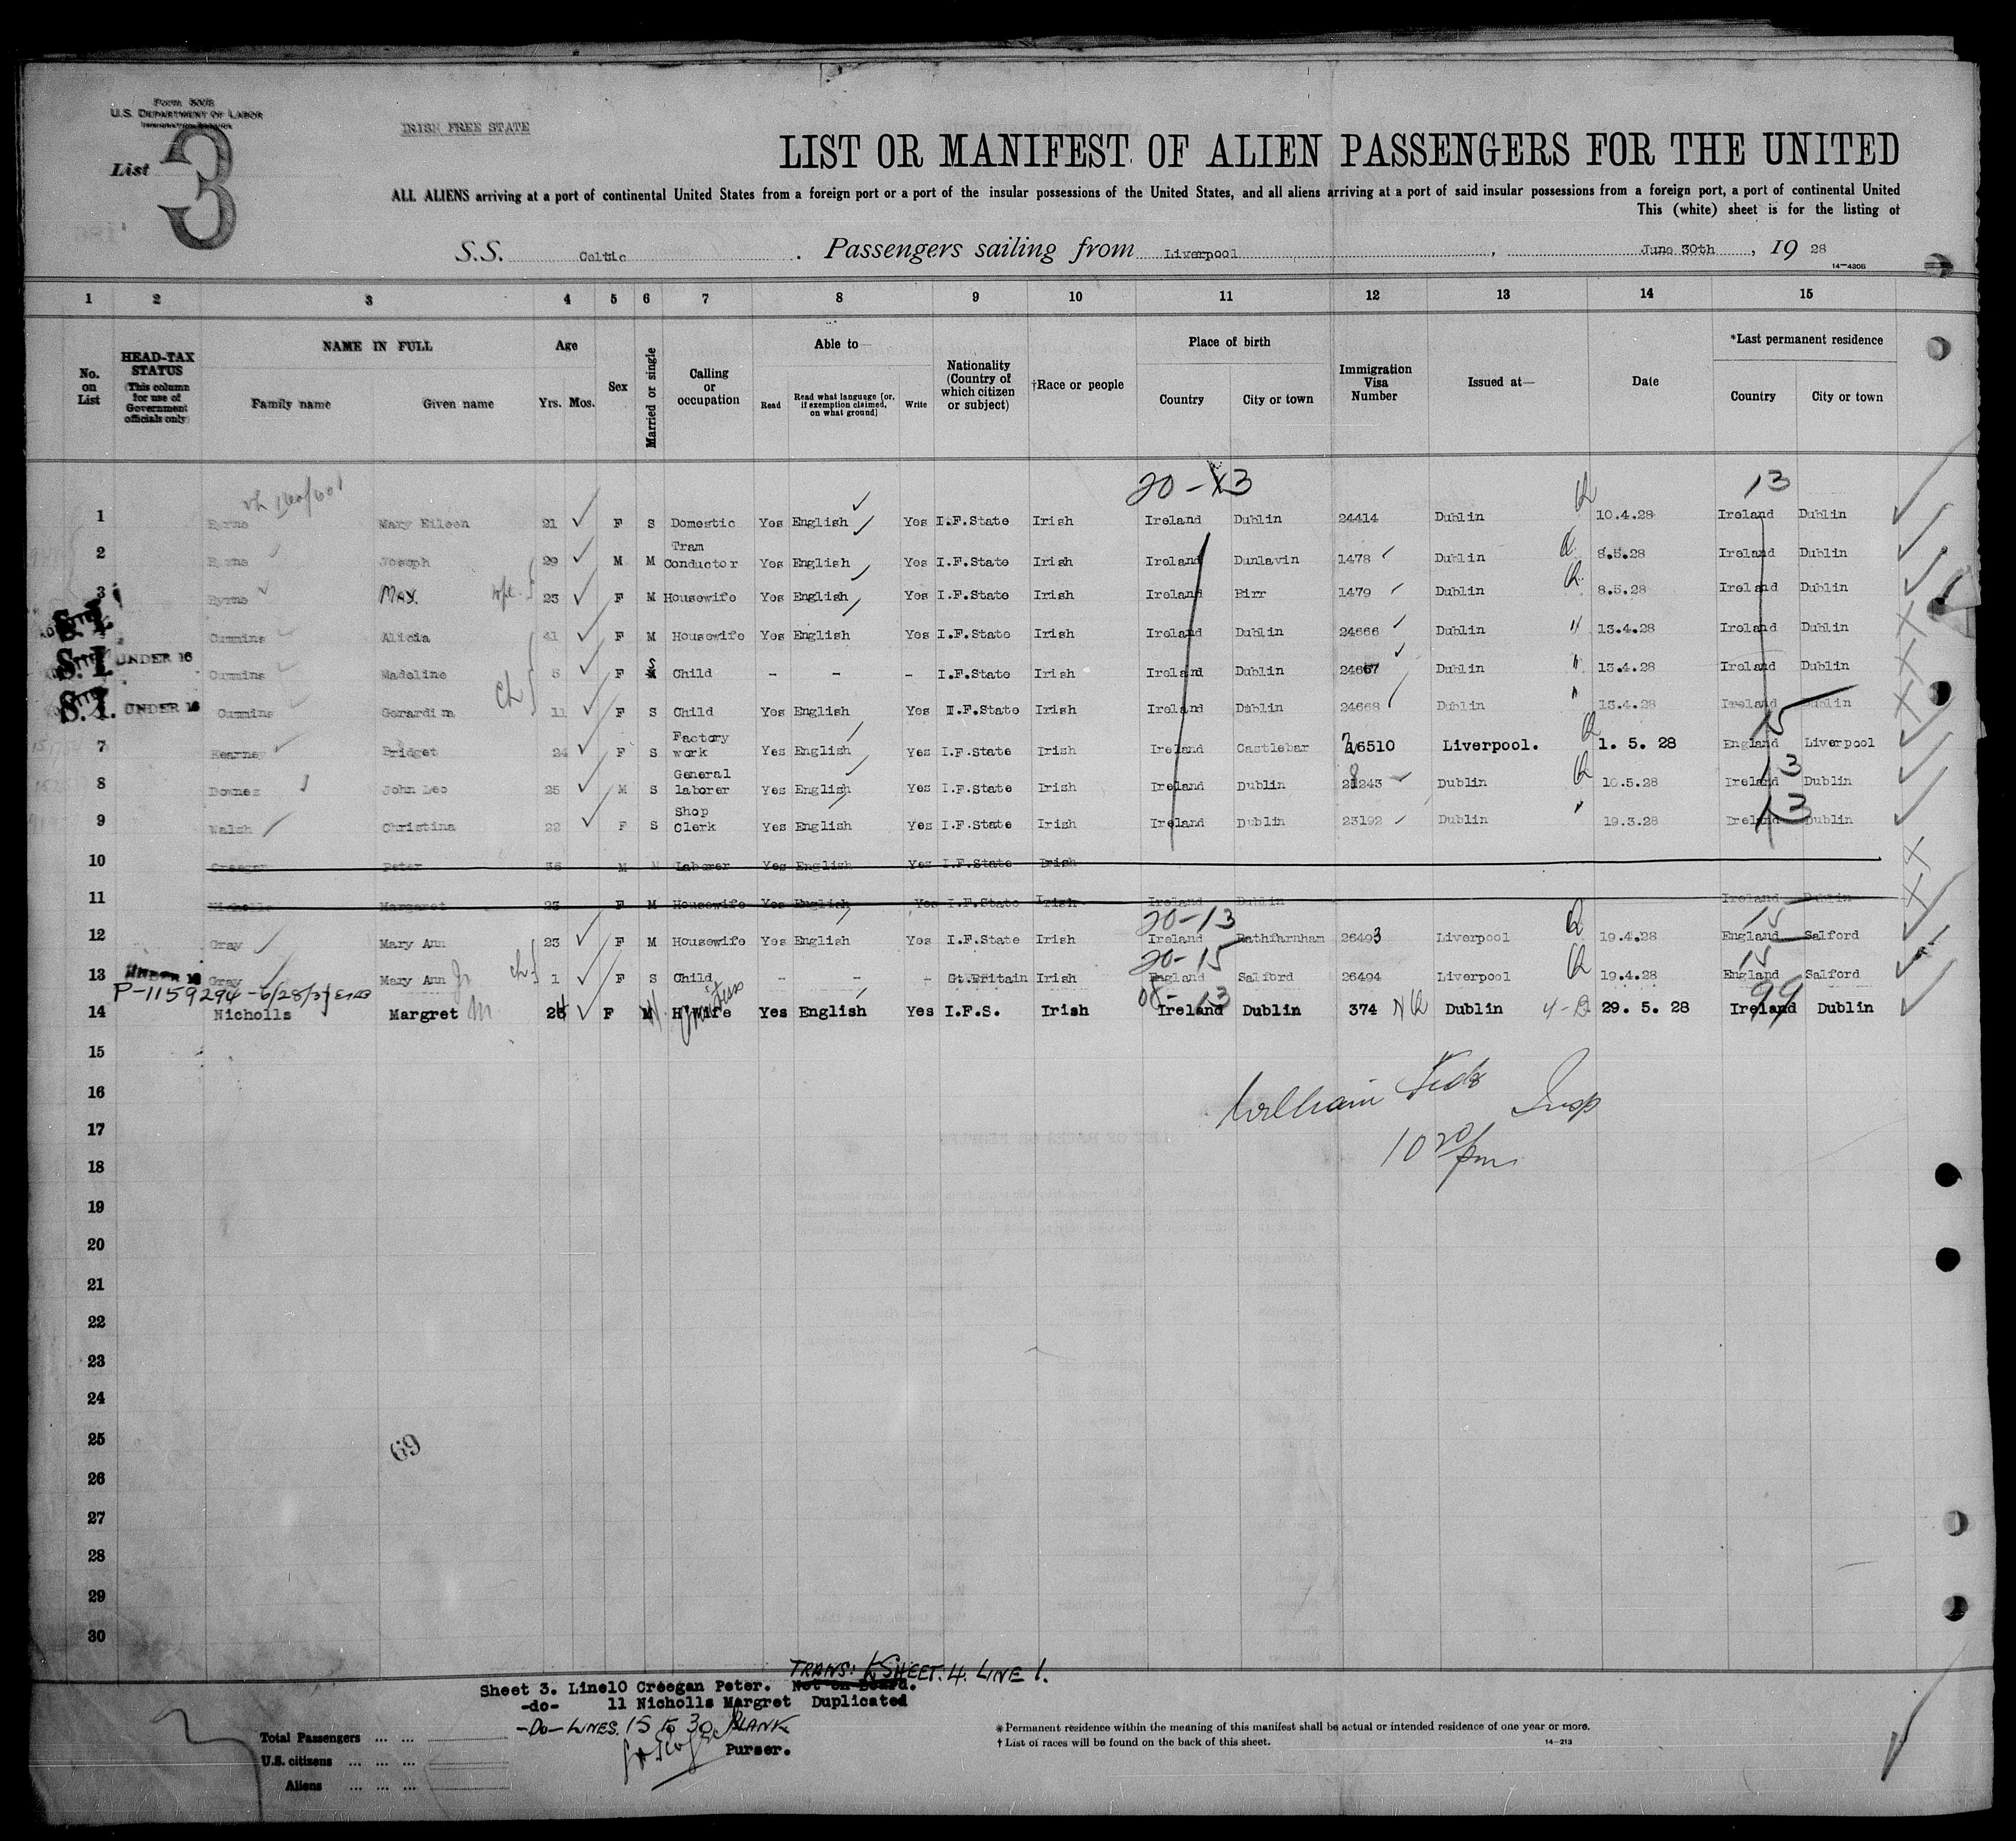 Form 500B
U.S. DEPARTMENT OF LABOR
IMMIGRATION SERVICE
List 3
IRISH FREE STATE
LIST OR MANIFEST OF ALIEN PASSENGERS FOR THE UNITED
ALL ALIENS arriving at a port of continental United States from a foreign port or a port of the insular possessions of the United States, and all aliens arriving at a port of said insular possessions from a foreign port, a port of continental United
This (white) sheet is for the listing of
S.S. Celtic. Passengers sailing from Liverpool, June 30th, 19 28
14—430B
1 2 3 4 5 6 7 8 9 10 11 12 13 14 15
No. on List
HEAD-TAX STATUS (This column for use of Government officials only)
NAME IN FULL Family name Given name
Age Yrs. Mos.
Sex
Married or single
Calling or occupation
Able to— Read Read what language (or, if exemption claimed, on what ground) Write
Nationality (Country of which citizen or subject)
†Race or people
Place of birth Country City or town
Immigration Visa Number
Issued at—
Date
*Last permanent residence Country City or town
20-13 13
1 Byrne Mary Eileen 21 F S Domestic Yes English Yes I.F.State Irish Ireland Dublin 24414 Dublin 10.4.28 Ireland Dublin
2 Byrne Joseph 29 M M Tram Conductor Yes English Yes I.F.State Irish Ireland Dunlavin 1478 Dublin 8.5.28 Ireland Dublin
3 Byrne MAY. wife 23 F M Housewife Yes English Yes I.F.State Irish Ireland Birr 1479 Dublin 8.5.28 Ireland Dublin
S.I. Cummins Alicia 41 F M Housewife Yes English Yes I.F.State Irish Ireland Dublin 24666 Dublin 13.4.28 Ireland Dublin
S.I. UNDER 16 Cummins Madeline 5 F S Child - - - I.F.State Irish Ireland Dublin 24667 Dublin 13.4.28 Ireland Dublin
S.I. UNDER 16 Cummins Gerardine ch 11 F S Child Yes English Yes I.F.State Irish Ireland Dublin 24668 Dublin 13.4.28 Ireland Dublin
15
7 Kearney Bridget 24 F S Factory work Yes English Yes I.F.State Irish Ireland Castlebar 26510 Liverpool. 1. 5. 28 England Liverpool
13
8 Downes John Leo 25 M S General laborer Yes English Yes I.F.State Irish Ireland Dublin 28243 Dublin 10.5.28 Ireland Dublin
13
9 Walsh Christina 22 F S Shop Clerk Yes English Yes I.F.State Irish Ireland Dublin 23192 Dublin 19.3.28 Ireland Dublin
10 Creegan Peter 36 M M Laborer Yes English Yes I.F.State Irish
11 Nicholls Margaret 23 F M Housewife Yes English Yes I.F.State Irish Ireland Dublin Ireland Dublin
20-13 15
12 Gray Mary Ann 23 F M Housewife Yes English Yes I.F.State Irish Ireland Rathfarnham 26493 Liverpool 19.4.28 England Salford
20-15 15
13 UNDER 16 Gray Mary Ann Jr ch 1 F S Child - - - Gt.Britain Irish England Salford 26494 Liverpool 19.4.28 England Salford
P-1159294-6/28/37
08-13 99
14 Nicholls Margret M 24 F M H'Wife Yes English Yes I.F.S. Irish Ireland Dublin 374 NQ Dublin 4-B. 29. 5. 28 Ireland Dublin
15
16
William Insp
17
10 20/pm
18
19
20
21
22
23
24
25
69
26
27
28
29
30
TRANS: SHEET. 4. LINE 1.
Sheet 3. Line10 Creegan Peter. Not on Board.
-do- 11 Nicholls Margret Duplicated
-Do- LINES. 15 to 30 BLANK
Purser.
Total Passengers ... ...
U.S. citizens ... ... ...
Aliens ... ... ...
*Permanent residence within the meaning of this manifest shall be actual or intended residence of one year or more.
†List of races will be found on the back of this sheet.
14—213